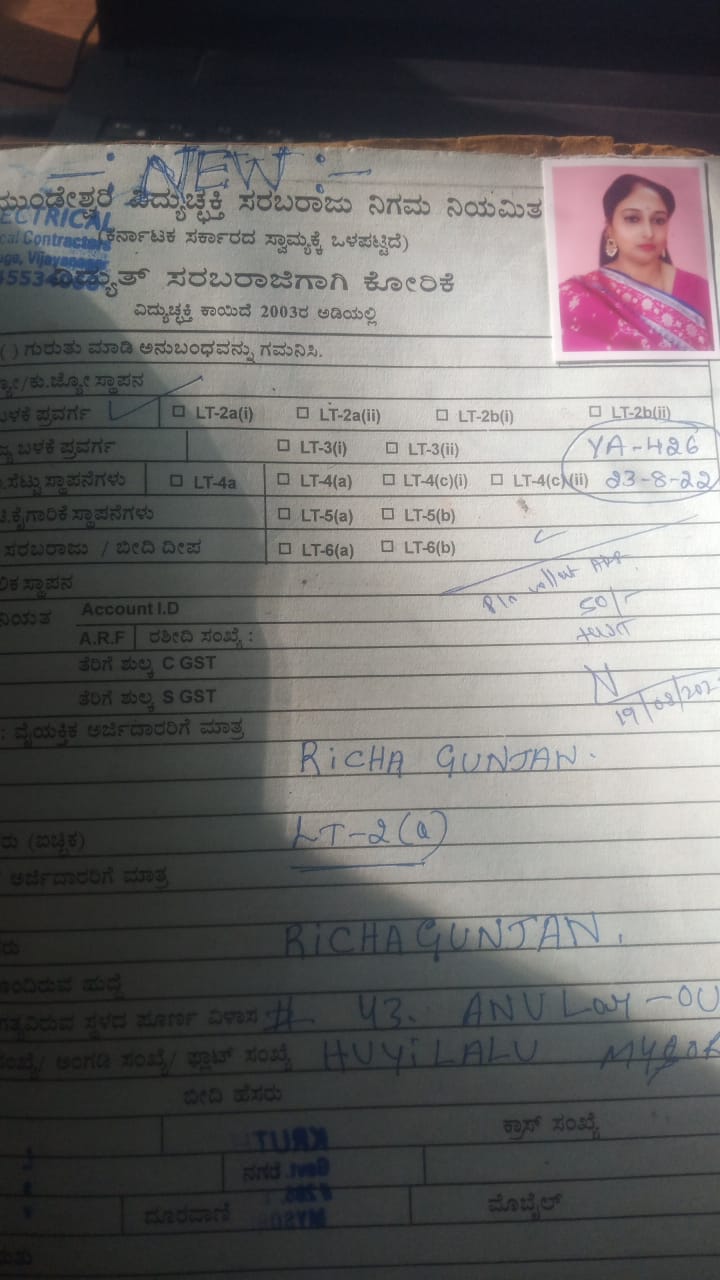 —: NEW :—
ಮುಂಡೇಶ್ವರಿ ವಿದ್ಯುಚ್ಛಕ್ತಿ ಸರಬರಾಜು ನಿಗಮ ನಿಯಮಿತ
ECTRICAL
cal Contractors
(ಕರ್ನಾಟಕ ಸರ್ಕಾರದ ಸ್ವಾಮ್ಯಕ್ಕೆ ಒಳಪಟ್ಟಿದೆ)
ವಿದ್ಯುತ್ ಸರಬರಾಜಿಗಾಗಿ ಕೋರಿಕೆ
ವಿದ್ಯುಚ್ಛಕ್ತಿ ಕಾಯಿದೆ 2003ರ ಅಡಿಯಲ್ಲಿ
( ) ಗುರುತು ಮಾಡಿ ಅನುಬಂಧವನ್ನು ಗಮನಿಸಿ.
ಸ್ಥಾಪನ
ಬಳಕೆ ಪ್ರವರ್ಗ ☐ LT-2a(i) ☐ LT-2a(ii) ☐ LT-2b(i) ☐ LT-2b(ii)
ಬಳಕೆ ಪ್ರವರ್ಗ ☐ LT-3(i) ☐ LT-3(ii) YA-426
ಸೆಟ್ಟು ಸ್ಥಾಪನೆಗಳು ☐ LT-4a ☐ LT-4(a) ☐ LT-4(c)(i) ☐ LT-4(c)(ii) 23-8-22
ಕೈಗಾರಿಕೆ ಸ್ಥಾಪನೆಗಳು ☐ LT-5(a) ☐ LT-5(b)
ಸರಬರಾಜು / ಬೀದಿ ದೀಪ ☐ LT-6(a) ☐ LT-6(b)
ಸ್ಥಾಪನ
Account I.D
50/-
A.R.F ರಶೀದಿ ಸಂಖ್ಯೆ :
ತೆರಿಗೆ ಶುಲ್ಕ C GST
ತೆರಿಗೆ ಶುಲ್ಕ S GST
: ವೈಯಕ್ತಿಕ ಅರ್ಜಿದಾರರಿಗೆ ಮಾತ್ರ
RICHA GUNJAN.
(ಐಚ್ಛಿಕ) LT-2(a)
ಅರ್ಜಿದಾರರಿಗೆ ಮಾತ್ರ
RICHA GUNJAN.
ಹುದ್ದೆ
ಸ್ಥಳದ ಪೂರ್ಣ ವಿಳಾಸ # 43. ANU Lay-OU
ಸಂಖ್ಯೆ/ ಅಂಗಡಿ ಸಂಖ್ಯೆ/ ಫ್ಲಾಟ್ ಸಂಖ್ಯೆ HUYILALU
ಬೀದಿ ಹೆಸರು
ಕ್ರಾಸ್ ಸಂಖ್ಯೆ
ನಗರ
ದೂರವಾಣಿ ಮೊಬೈಲ್